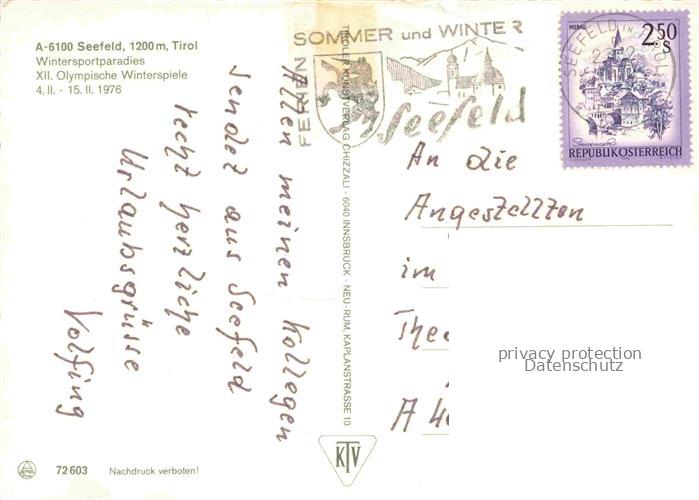 A-6100 Seefeld, 1200 m, Tirol
Wintersportparadies
XII. Olympische Winterspiele
4. II. - 15. II. 1976
Allen meinen Kollegen
sendet aus Seefeld
recht herzliche
Urlaubsgrüsse
Volfing
72 603
Nachdruck verboten!
TIROLER KUNSTVERLAG CHIZZALI - 6040 INNSBRUCK - NEU-RUM, KAPLANSTRASSE 10
KTV
FERIEN
SOMMER und WINTER
Seefeld
SEEFELD IN TIROL
MURAU
2.50
S
REPUBLIK ÖSTERREICH
An die
Angestellten
im
A 4
privacy protection
Datenschutz